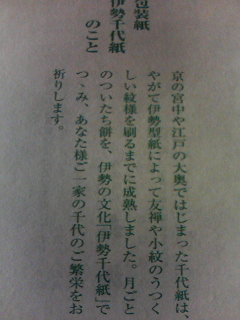 包装紙
伊勢千代紙
のこと
京の宮中や江戸の大奥ではじまった千代紙は、
やがて伊勢型紙によって友禅や小紋のうつく
しい紋様を刷るまでに成熟しました。月ごと
のついたち餅を、伊勢の文化「伊勢千代紙」で
つゝみ、あなた様ご一家の千代のご繁栄をお
祈りします。